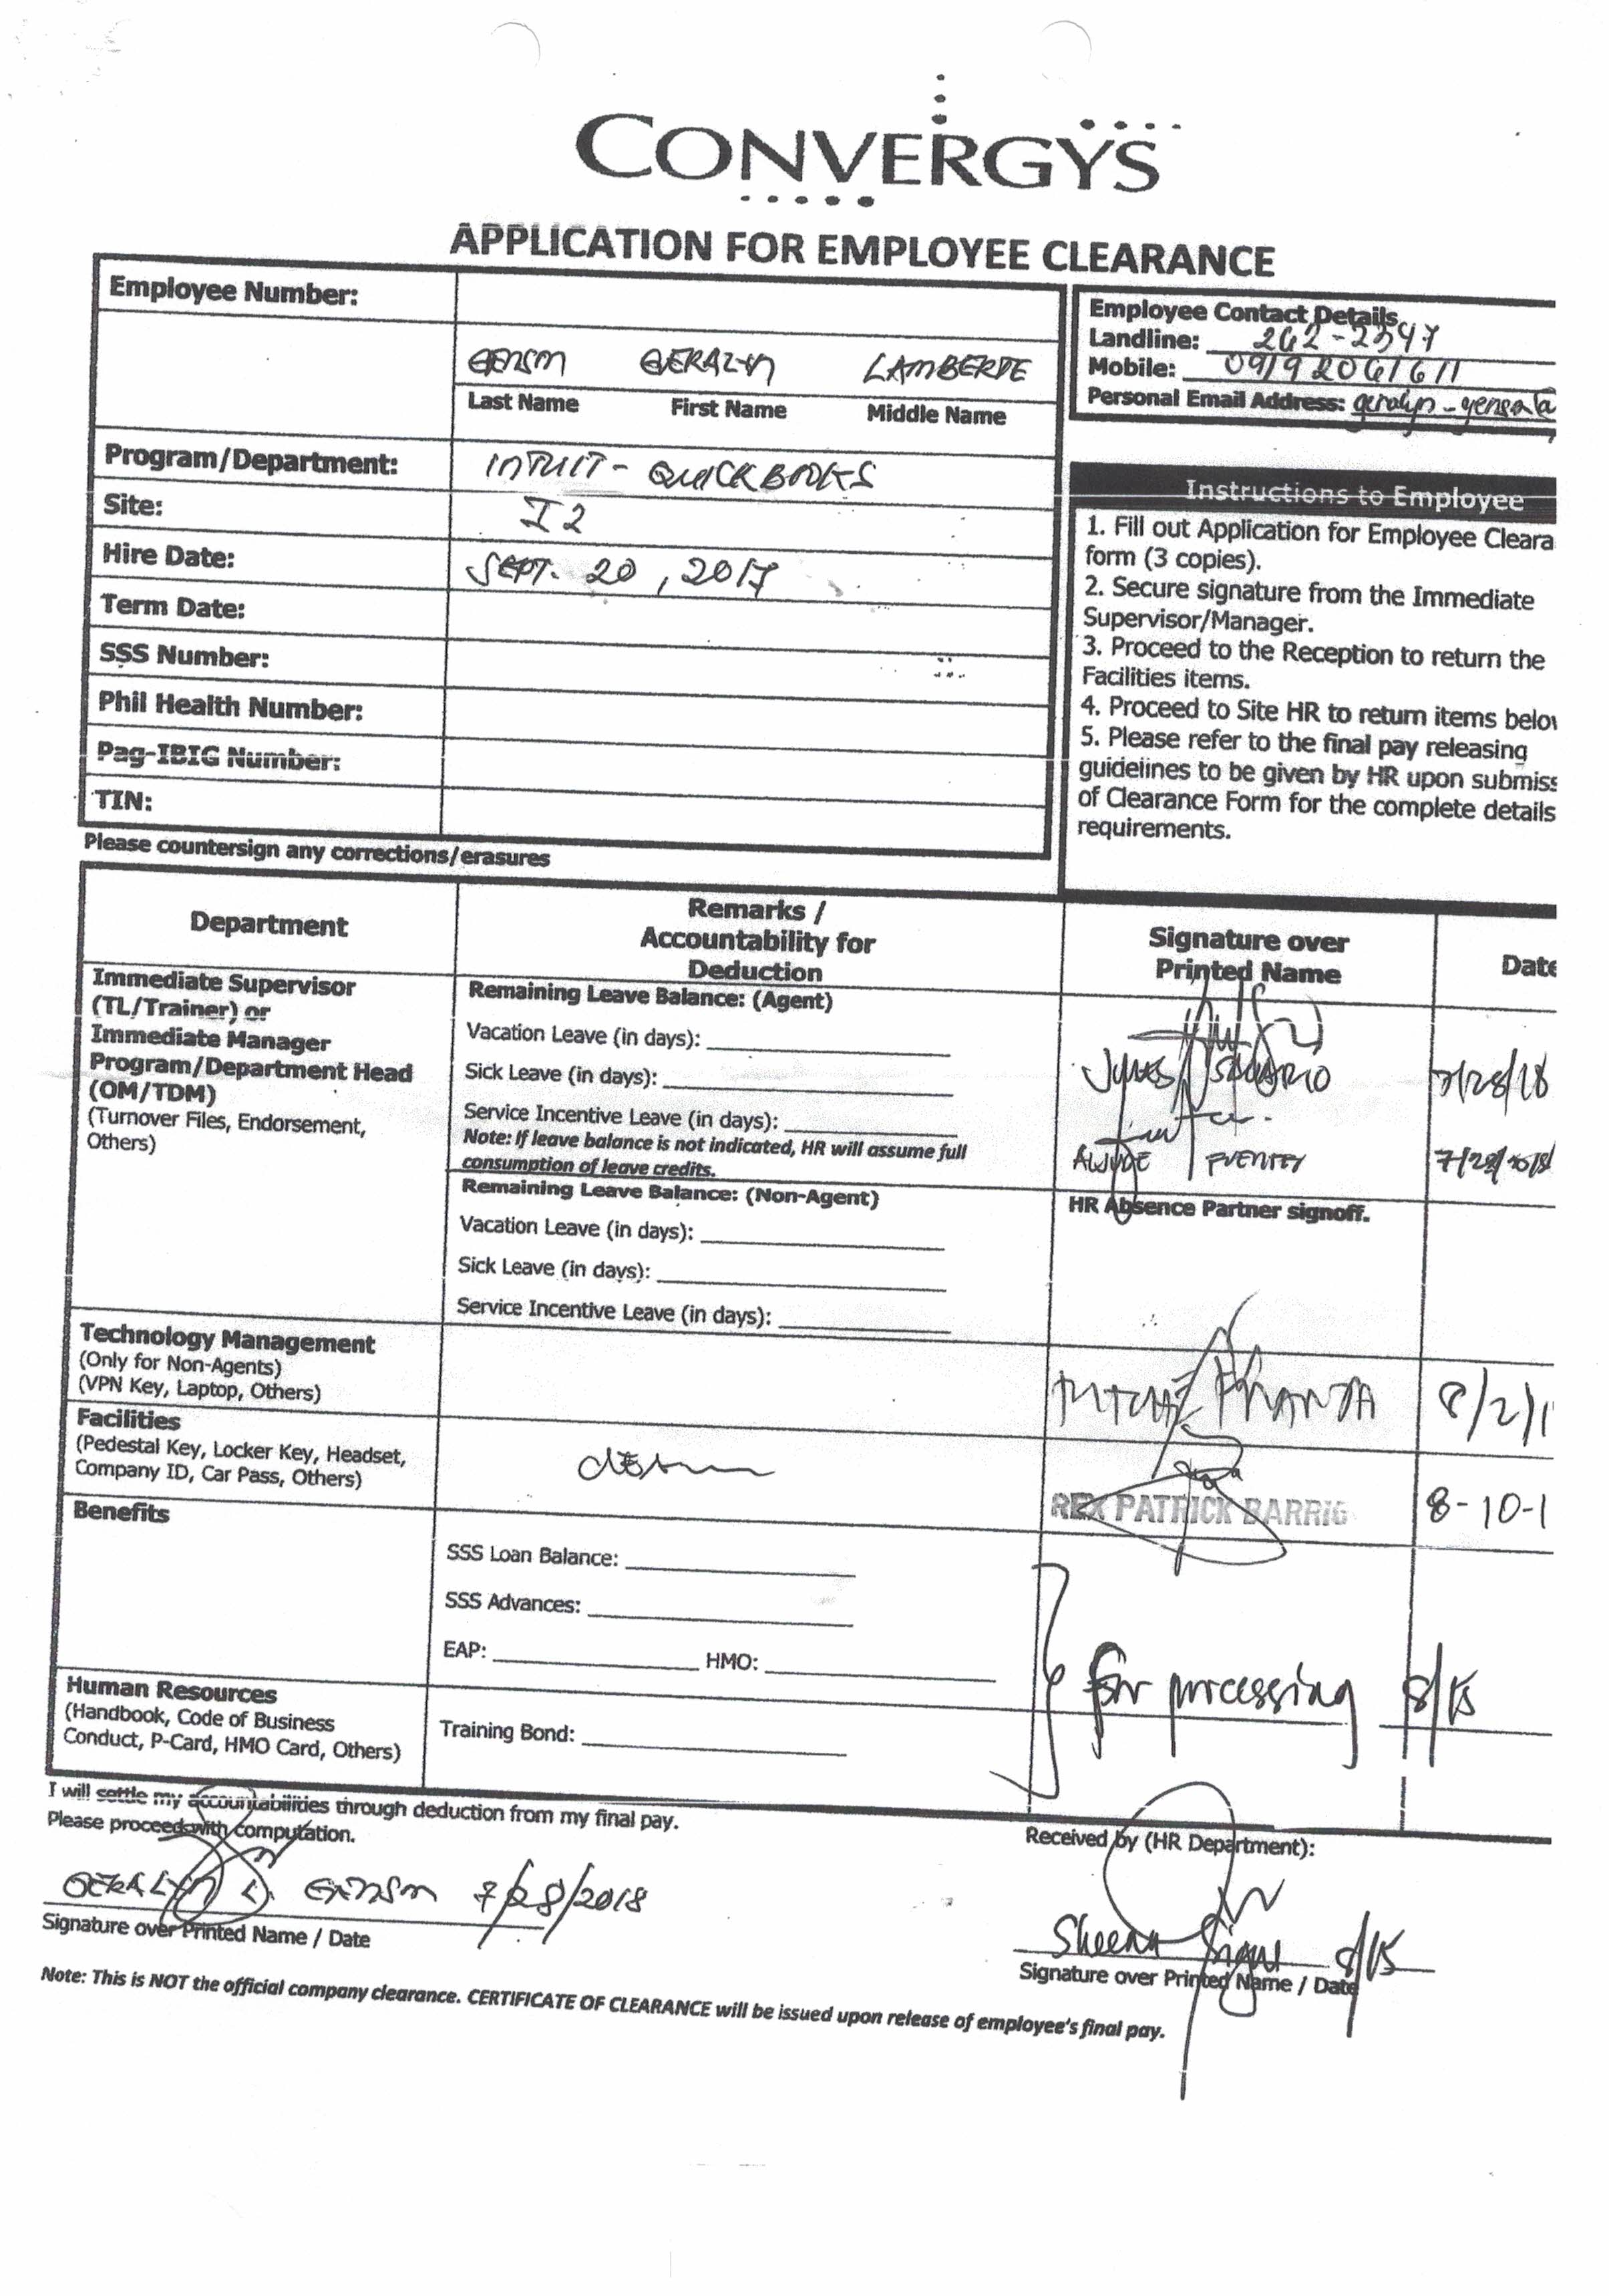 CONVERGYS
APPLICATION FOR EMPLOYEE CLEARANCE
Employee Number:
GENSON GERALYN LAMBERTE
Last Name First Name Middle Name
Program/Department: INTUIT - QUICKBOOKS
Site: I2
Hire Date: SEPT. 20, 2017
Term Date:
SSS Number:
Phil Health Number:
Pag-IBIG Number:
TIN:
Please countersign any corrections/erasures
Employee Contact Details
Landline: 262-2347
Mobile: 09192061611
Personal Email Address:
Instructions to Employee
1. Fill out Application for Employee Cleara
form (3 copies).
2. Secure signature from the Immediate
Supervisor/Manager.
3. Proceed to the Reception to return the
Facilities items.
4. Proceed to Site HR to return items belov
5. Please refer to the final pay releasing
guidelines to be given by HR upon submiss
of Clearance Form for the complete details
requirements.
Department
Remarks /
Accountability for
Deduction
Signature over
Printed Name
Date
Immediate Supervisor
(TL/Trainer) or
Immediate Manager
Program/Department Head
(OM/TDM)
(Turnover Files, Endorsement,
Others)
Remaining Leave Balance: (Agent)
Vacation Leave (in days):
Sick Leave (in days):
Service Incentive Leave (in days):
Note: If leave balance is not indicated, HR will assume full
consumption of leave credits.
7/28/18
FUENTES 7/28/2018
Remaining Leave Balance: (Non-Agent)
Vacation Leave (in days):
Sick Leave (in days):
Service Incentive Leave (in days):
HR Absence Partner signoff.
Technology Management
(Only for Non-Agents)
(VPN Key, Laptop, Others)
8/2/1
Facilities
(Pedestal Key, Locker Key, Headset,
Company ID, Car Pass, Others)
REX PATRICK BARRIG
8-10-1
Benefits
SSS Loan Balance:
SSS Advances:
EAP: HMO:
for processing 8/15
Human Resources
(Handbook, Code of Business
Conduct, P-Card, HMO Card, Others)
Training Bond:
I will settle my accountabilities through deduction from my final pay.
Please proceed with computation.
GERALYN L. GENSON 7/28/2018
Signature over Printed Name / Date
Received by (HR Department):
Sheena 8/15
Signature over Printed Name / Date
Note: This is NOT the official company clearance. CERTIFICATE OF CLEARANCE will be issued upon release of employee's final pay.